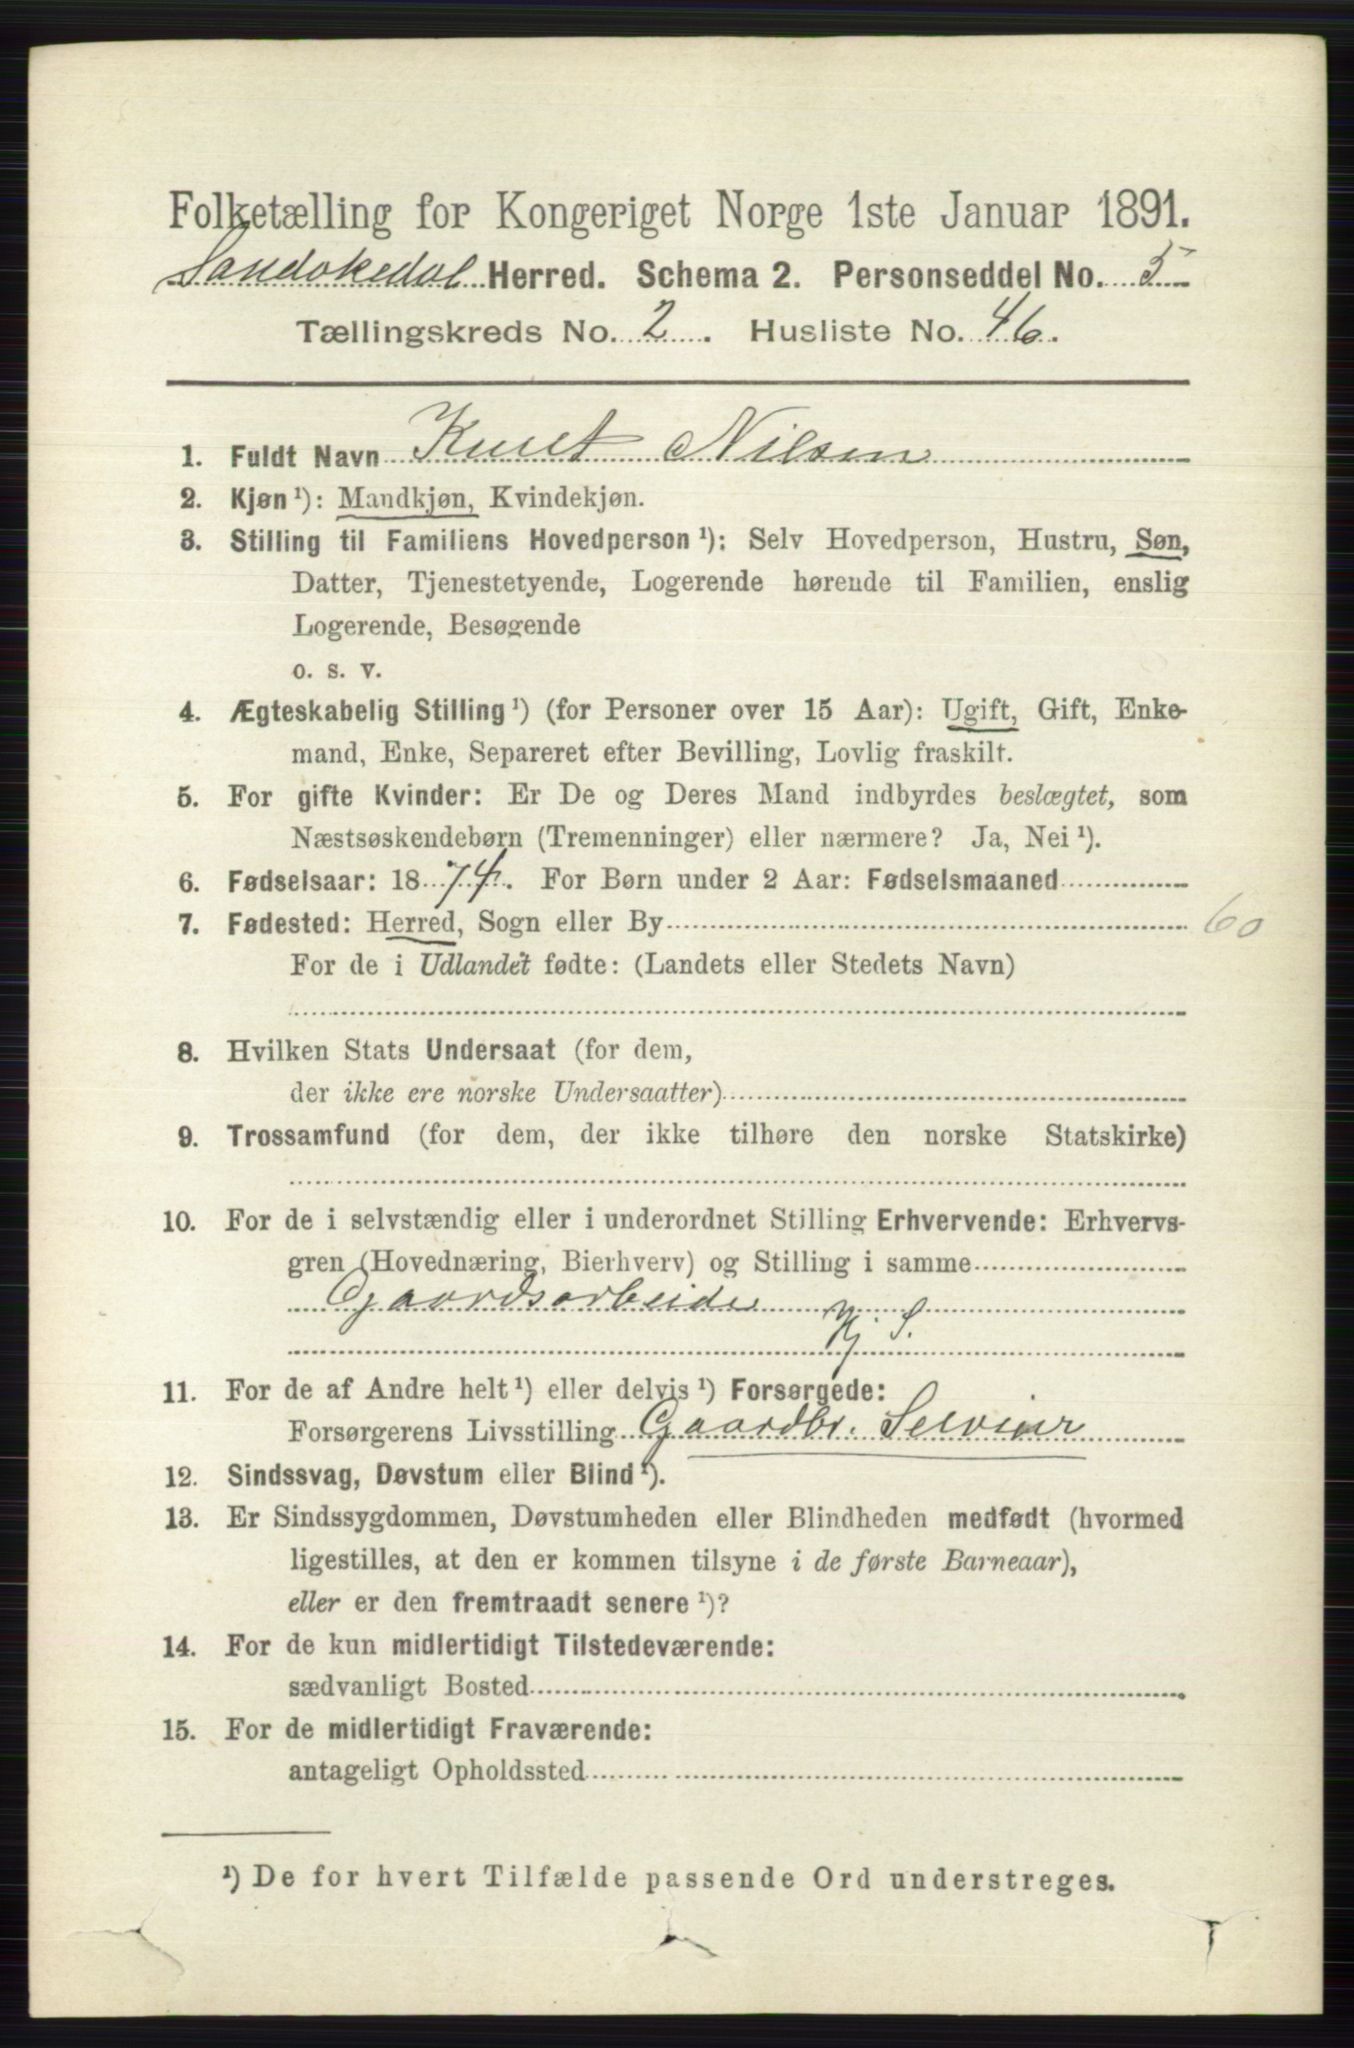 Folketælling for Kongeriget Norge 1ste Januar 1891.
Sandøkedal Herred. Schema 2. Personseddel No. 5
Tællingskreds No. 2. Husliste No. 46.
1. Fuldt Navn Knut Nilsen
2. Kjøn ¹): Mandkjøn, Kvindekjøn.
3. Stilling til Familiens Hovedperson ¹): Selv Hovedperson, Hustru, Søn,
Datter, Tjenestetyende, Logerende hørende til Familien, enslig
Logerende, Besøgende
o. s. v.
4. Ægteskabelig Stilling ¹) (for Personer over 15 Aar): Ugift, Gift, Enke-
mand, Enke, Separeret efter Bevilling, Lovlig fraskilt.
5. For gifte Kvinder: Er De og Deres Mand indbyrdes beslægtet, som
Næstsøskendebørn (Tremenninger) eller nærmere? Ja, Nei ¹).
6. Fødselsaar: 1874. For Børn under 2 Aar: Fødselsmaaned
7. Fødested: Herred, Sogn eller By 60
For de i Udlandet fødte: (Landets eller Stedets Navn)
8. Hvilken Stats Undersaat (for dem,
der ikke ere norske Undersaatter)
9. Trossamfund (for dem, der ikke tilhøre den norske Statskirke)
10. For de i selvstændig eller i underordnet Stilling Erhvervende: Erhvervs-
gren (Hovednæring, Bierhverv) og Stilling i samme
Gaardsarbeide
Hj. S.
11. For de af Andre helt ¹) eller delvis ¹) Forsørgede:
Forsørgerens Livsstilling Gaardbr. Selveier
12. Sindssvag, Døvstum eller Blind ¹).
13. Er Sindssygdommen, Døvstumheden eller Blindheden medfødt (hvormed
ligestilles, at den er kommen tilsyne i de første Barneaar),
eller er den fremtraadt senere ¹)?
14. For de kun midlertidigt Tilstedeværende:
sædvanligt Bosted
15. For de midlertidigt Fraværende:
antageligt Opholdssted
¹) De for hvert Tilfælde passende Ord understreges.